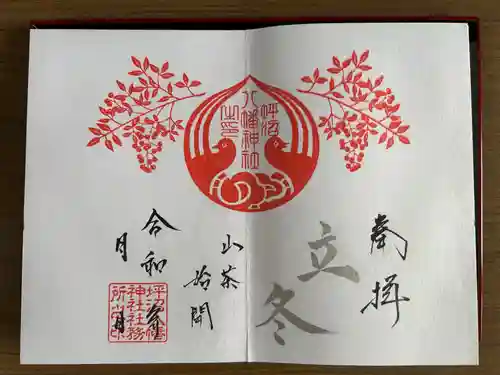 奉拝
立冬
山茶
始開
坪沼
八幡神社
之印
令和 年
月 日
坪沼八幡
神社社務
所之印